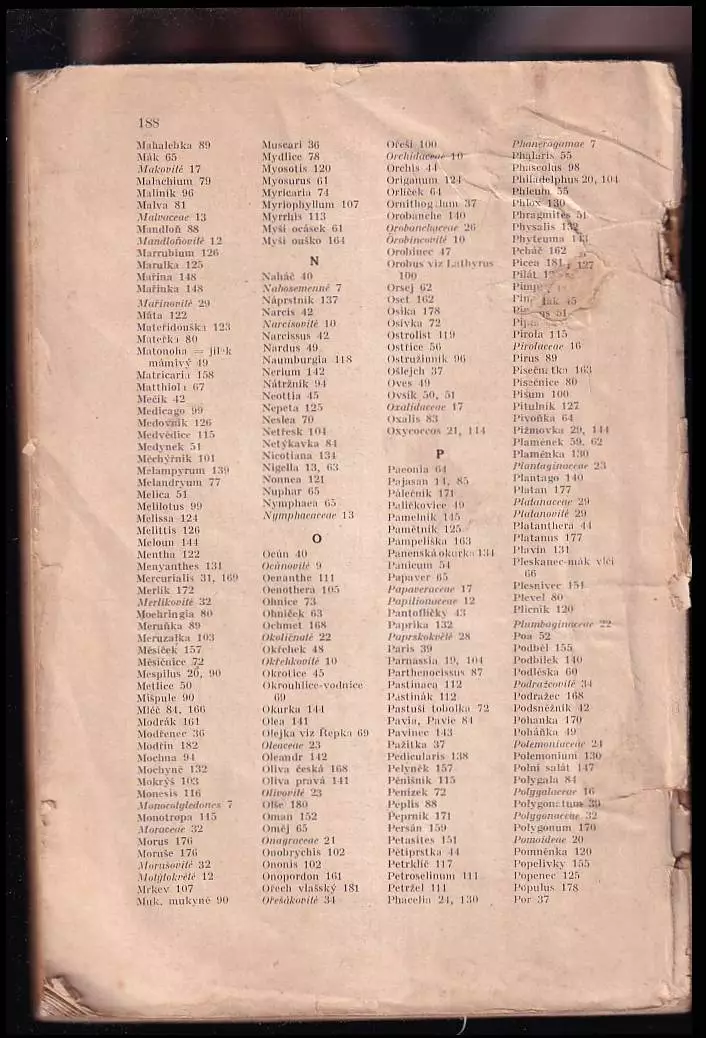 188
Mahalebka 89
Mák 65
Makovité 17
Malachium 79
Maliník 96
Malva 81
Malvaceae 13
Mandloň 88
Mandloňovité 12
Marrubium 126
Marulka 125
Mařina 148
Mařinka 148
Mařinovité 29
Máta 122
Mateřídouška 123
Mateřka 80
Matonoha = jílek
mámivý 49
Matricaria 158
Matthiola 67
Mečík 42
Medicago 99
Medovník 126
Medvědice 115
Medynek 51
Měchýřník 101
Melampyrum 139
Melandryum 77
Melica 51
Melilotus 99
Melissa 124
Melittis 126
Meloun 144
Mentha 122
Menyanthes 131
Mercurialis 31, 169
Merlík 172
Merlíkovité 32
Moehringia 80
Meruňka 89
Meruzalka 103
Měsíček 157
Měsíčnice 72
Mespilus 20, 90
Metlice 50
Mišpule 90
Mléč 84, 166
Modrák 161
Modřenec 36
Modřín 182
Mochna 94
Mochyně 132
Mokrýš 103
Monesis 116
Monocotyledones 7
Monotropa 115
Moraceae 32
Morus 176
Moruše 176
Morušovité 32
Motýlokvěté 12
Mrkev 107
Muk, mukyně 90
Muscari 36
Mydlice 78
Myosotis 120
Myosurus 61
Myricaria 74
Myriophyllum 107
Myrrhis 113
Myší ocásek 61
Myší ouško 164
N
Naháč 40
Nahosemenné 7
Náprstník 137
Narcis 42
Narcisovité 10
Narcissus 42
Nardus 49
Naumburgia 118
Nerium 142
Nátržník 94
Neottia 45
Nepeta 125
Neslea 70
Netřesk 104
Netýkavka 84
Nicotiana 134
Nigella 13, 63
Nonnea 121
Nuphar 65
Nymphaea 65
Nymphaeaceae 13
O
Ocún 40
Ocúnovité 9
Oenanthe 111
Oenothera 105
Ohnice 73
Ohníček 63
Ochmet 168
Okoličnaté 22
Okřehek 48
Okřehkovité 10
Okrotice 45
Okrouhlice-vodnice
69
Okurka 144
Olea 141
Olejka viz Řepka 69
Oleaceae 23
Oleandr 142
Oliva česká 168
Oliva pravá 141
Olivovité 23
Olše 180
Oman 152
Oměj 65
Onagraceae 21
Onobrychis 102
Ononis 102
Onopordon 161
Ořech vlašský 181
Ořešákovité 34
Ořeší 100
Orchidaceae 10
Orchis 44
Origanum 124
Orlíček 64
Ornithogalum 37
Orobanche 140
Orobanchaceae 26
Orobincovité 10
Orobinec 47
Orobus viz Lathyrus
100
Orsej 62
Oset 162
Osika 178
Osívka 72
Ostrolist 119
Ostřice 56
Ostružinník 96
Ošlejch 37
Oves 49
Ovsík 50, 51
Oxalidaceae 17
Oxalis 83
Oxycoccos 21, 114
P
Paeonia 64
Pajasan 14, 85
Pálečník 171
Paličkovice 49
Pamelník 145
Pamětník 125
Pampeliška 163
Panenská okurka 134
Panicum 54
Papaver 65
Papaveraceae 17
Papilionaceae 12
Pantoflíčky 43
Paprika 132
Paprskokvěté 28
Paris 39
Parnassia 19, 104
Parthenocissus 87
Pastinaca 112
Pastinák 112
Pastuší tobolka 72
Pavia, Pavie 84
Pavinec 143
Pažitka 37
Pedicularis 138
Pelyněk 157
Pěnišník 115
Penízek 72
Peplis 88
Peprník 171
Persán 159
Petasites 151
Pětiprstka 44
Petrklíč 117
Petroselinum 111
Petržel 111
Phacelia 24, 130
Phanerogamae 7
Phalaris 55
Phaseolus 98
Philadelphus 20, 104
Phleum 55
Phlox 130
Phragmites 51
Physalis 132
Phyteuma 143
Pcháč 162
Picea 181, 127
Pilát
Pirola 115
Pirolaceae 16
Pirus 89
Písečnatka 163
Písečnice 80
Pisum 100
Pitulník 127
Pivoňka 64
Pižmovka 29, 144
Plamének 59, 62
Plaménka 130
Plantaginaceae 23
Plantago 140
Platan 177
Platanaceae 29
Platanovité 29
Platanthera 44
Platanus 177
Plavín 131
Pleskanec-mák vlčí
66
Plesnivec 154
Plevel 80
Plicník 120
Plumbaginaceae 22
Poa 52
Podběl 155
Podbílek 140
Podléška 60
Podražcovité 34
Podražec 168
Podsněžník 42
Pohanka 170
Poháňka 49
Polemoniaceae 24
Polemonium 130
Polní salát 147
Polygala 84
Polygalaceae 16
Polygonatum 39
Polygonaceae 32
Polygonum 170
Pomoideae 20
Pomněnka 120
Popelivky 155
Popenec 125
Populus 178
Por 37